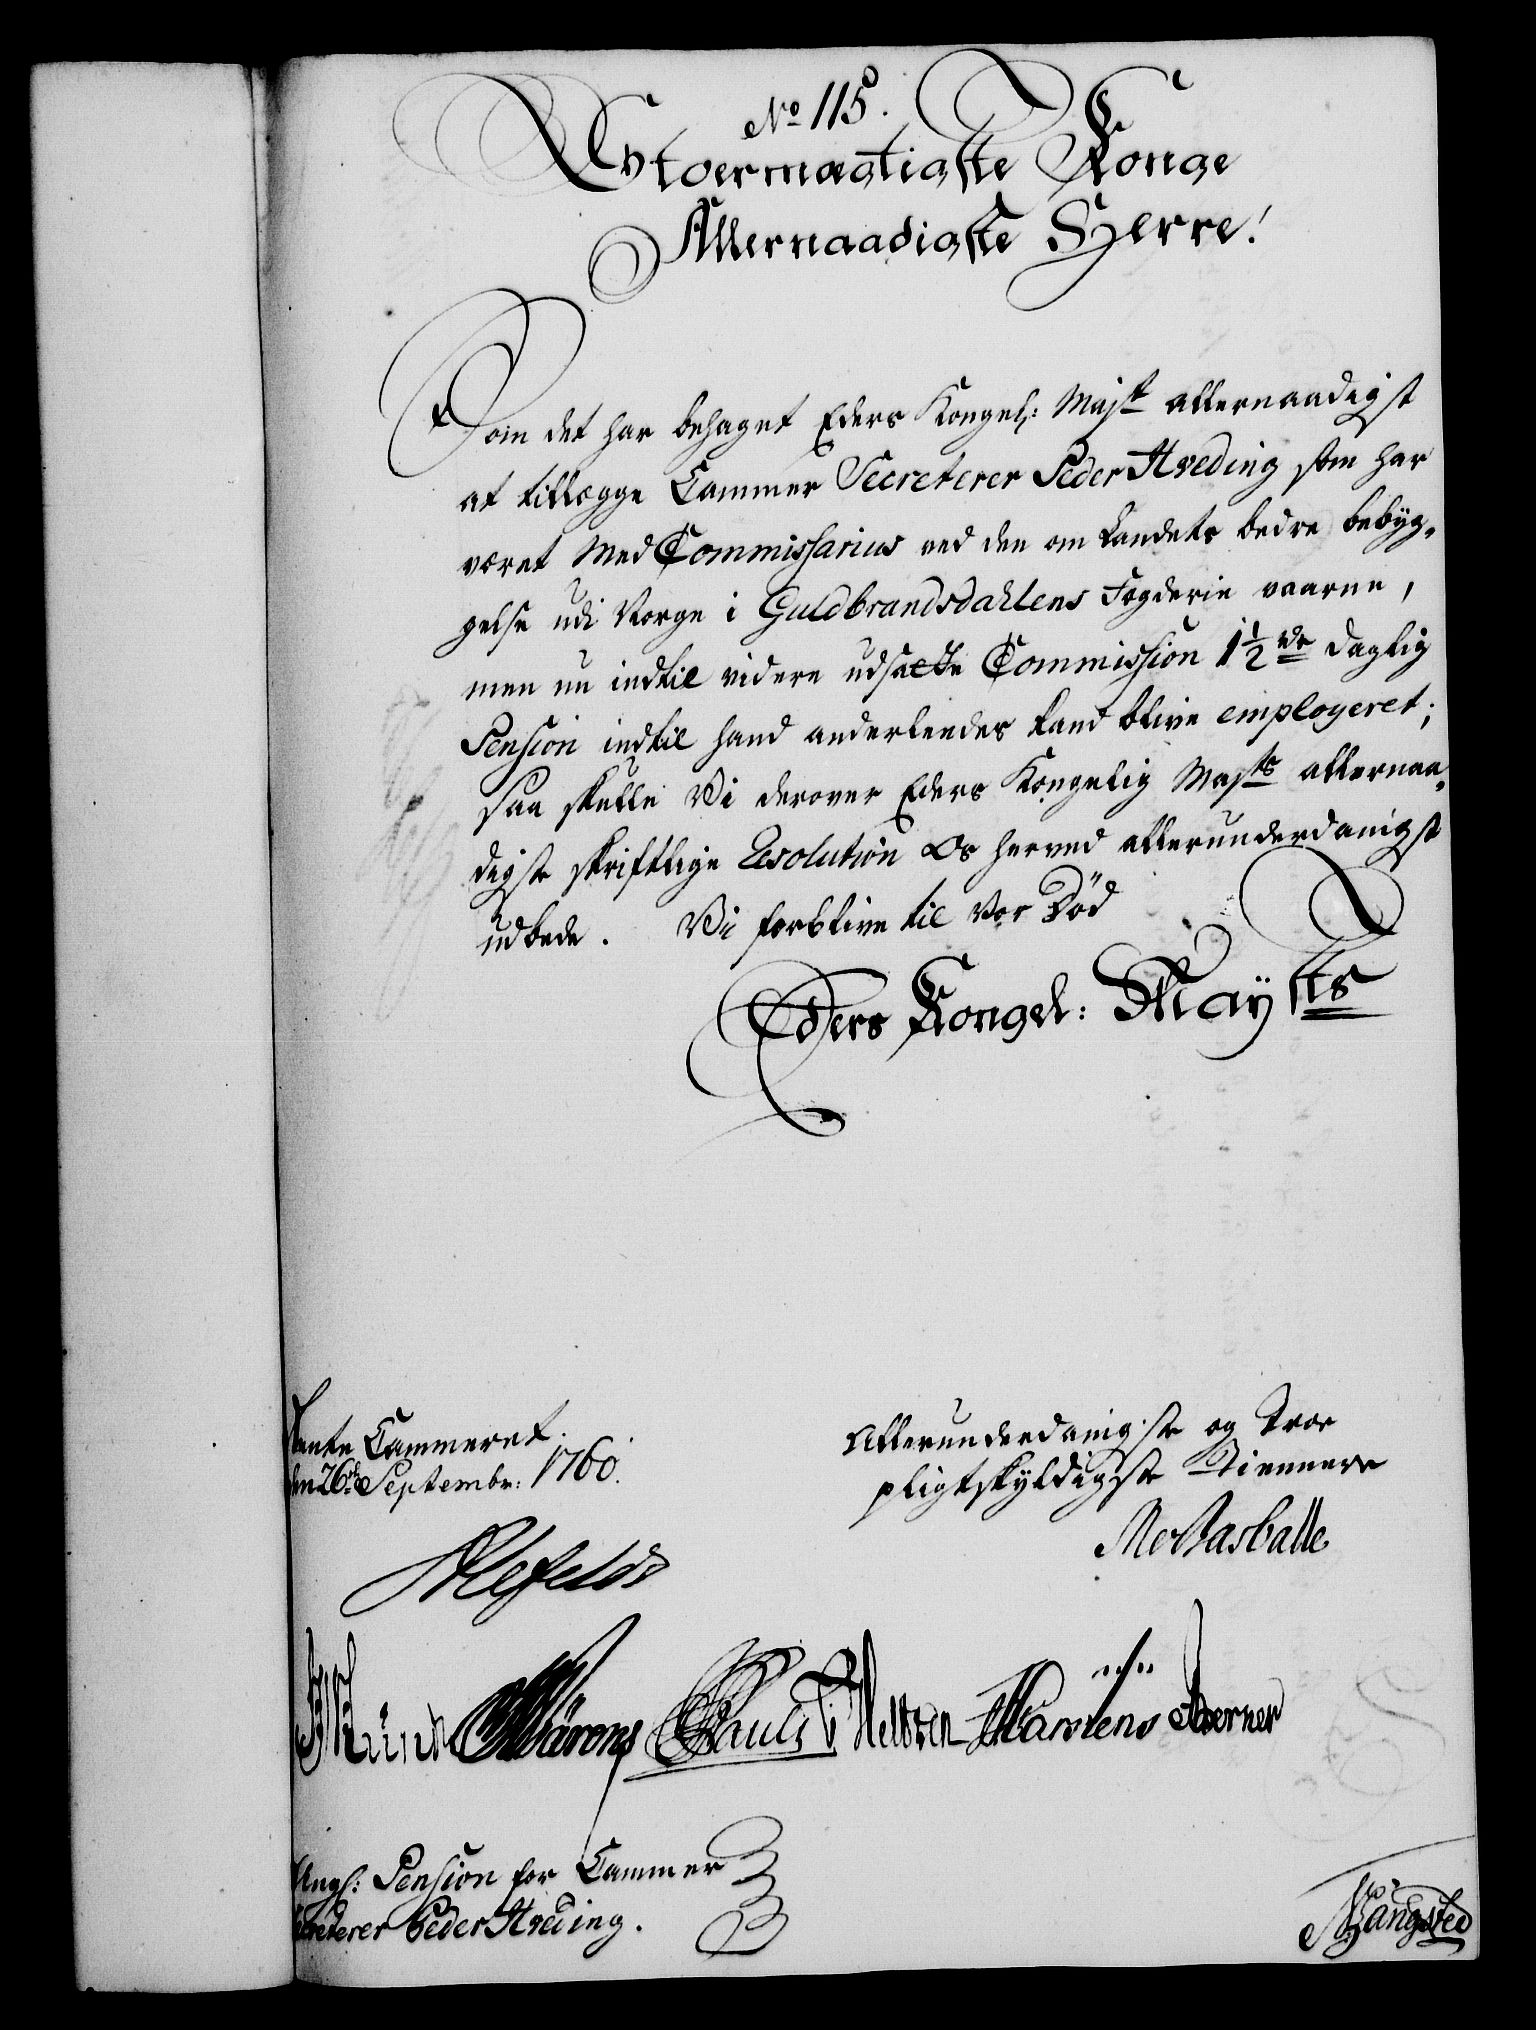 No 115.
Stormægtigste Konge
Allernaadigste Herre!
Som det har behaget Eders Kongel: Majst allernaadigst
at tillægge Cammer Secreterer Peder Hveding som har
været Med Commissarius ved den om Landets bedre bebyg-
gelse udi Norge i Guldbrandsdahlens Fogderie vaarne,
men nu indtil videre udsatte Commission 1 1/2 rdr daglig
Pension indtil hand anderleedes kand blive employeret;
saa skulle Vi derover Eders Kongelig Majsts allernaa-
digste skriftlige Resolution Os herved allerunderdanigst
udbede. Vi forblive til Vor Død
Eders Kongel: Maysts
Rente Cammeret.
den 26de Septembr: 1760.
Allerunderdanigste og Troe
pligtskyldigste Tiennere
Ahlefeldt
Pauli
Martens
Angl: Pension for Cammer
Secreterer Peder Hveding.